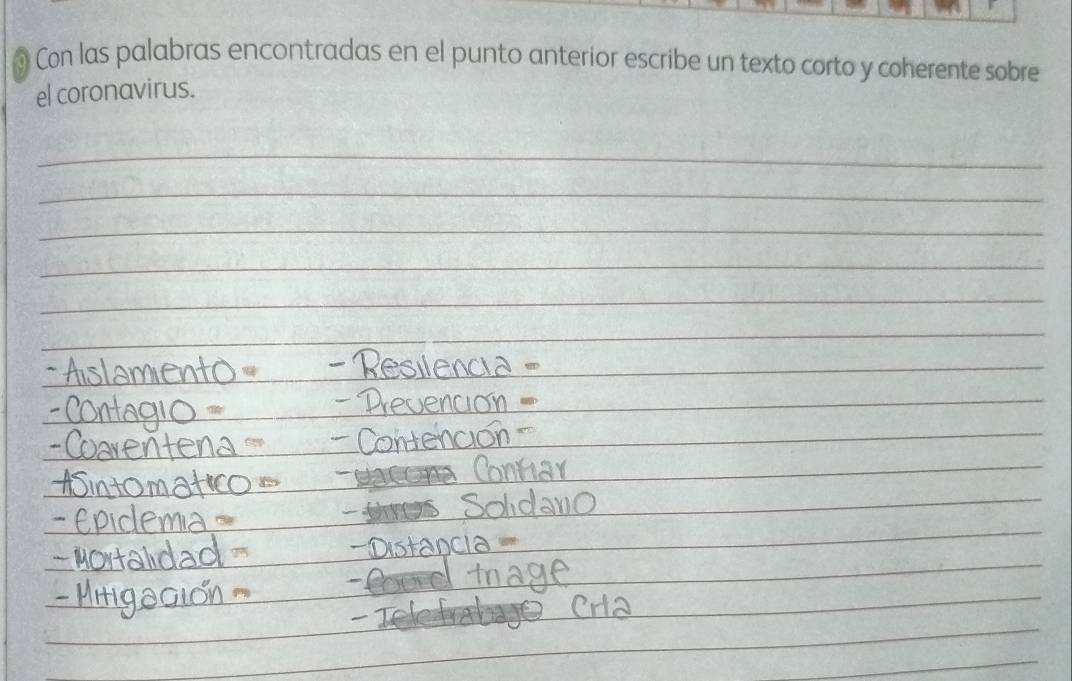 9 Con las palabras encontradas en el punto anterior escribe un texto corto y coherente sobre
el coronavirus.
- Aislamiento - - Resilencia -
- Contagio - - Prevención -
- Coarentena - - Contención -
ASintomático - - vacuna Confiar
- Epidemia - - virus Solidario
- Mortalidad - - Distancia -
- Mitigación - - Covid triage
- Teletrabajo Cita